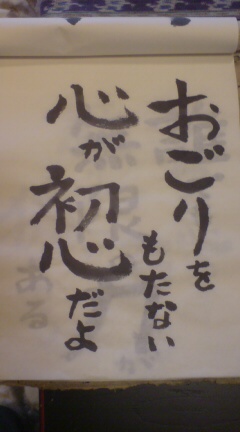 おごりを
もたない
心が
初心だよ